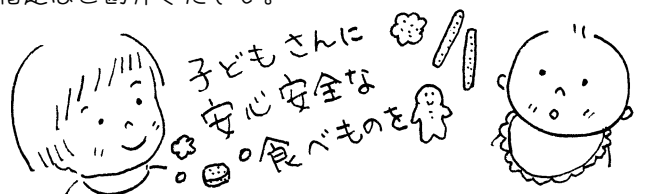 ください。
子どもさんに
安心安全な
食べものを